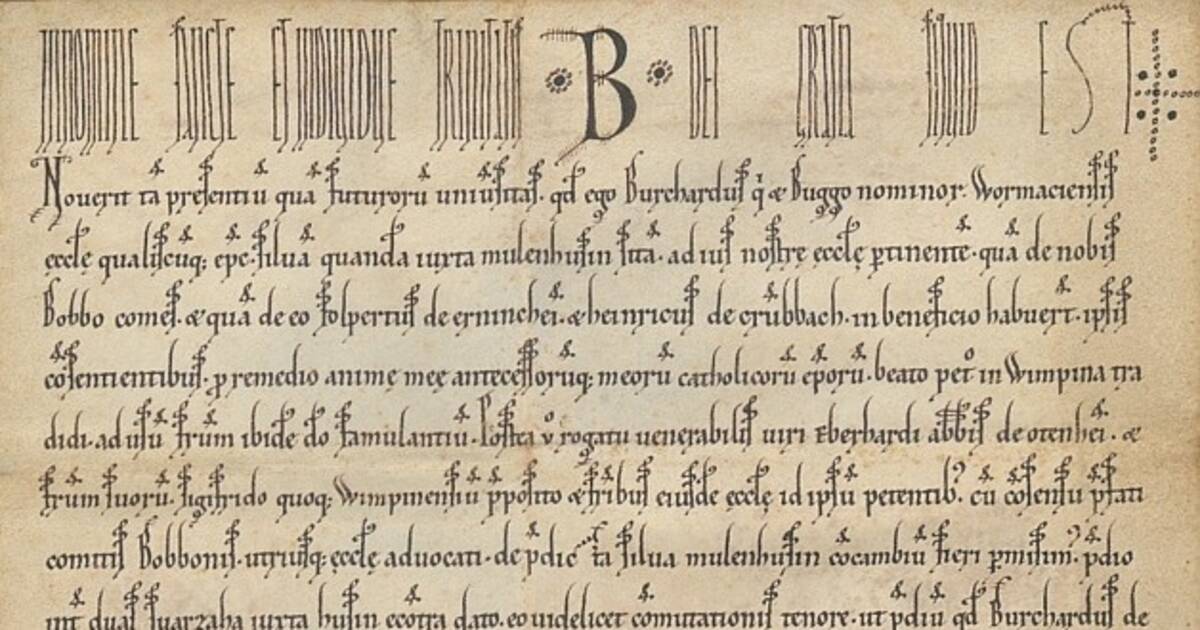 IN NOMINE SANCTE ET INDIVIDUE TRINITATIS B DEI GRATIA EST
Noverit tā preſentiū quā futurorū univſitas. qd ego Burchardus q̇ & Buggo nominor. Wormacienſis
eccłę qualiſcūq; epc. ſilvā quandā iuxta mulenhuſun ſitā. ad ius noſtre eccłę ꝑtinentē. quā de nobis
Bobbo comes. & quā de eo folpertus de erninchei. & heinricus de crubbach. in beneficio habuert. ipſis
cōſentientibus. ꝓ remedio animę męę anteceſſorūq; meorū catholicorū epōrū. beato pet° in Wimpina tra
didi. ad uſū frūm ibidē dō famulantiū. Poſtea v° rogatu uenerabilis uiri Eberhardi abbis de otenhei. &
frūm ſuorū. ſigifrido quoq; Wimpinenſiū ppoſito & frībus eiuſdē eccłę id ipſū petentib. cū cōſenſu pfati
comitis Bobbonis. utriuſq; eccłę advocati. de pdic ta ſilva mulenhuſun cōcambiū fieri ꝑmiſim. pdio
int duas ſuarzaha iuxta huſun ecōtra dato. eo uidelicet cōmutationis tenore. ut pdiū qd Burchardus de